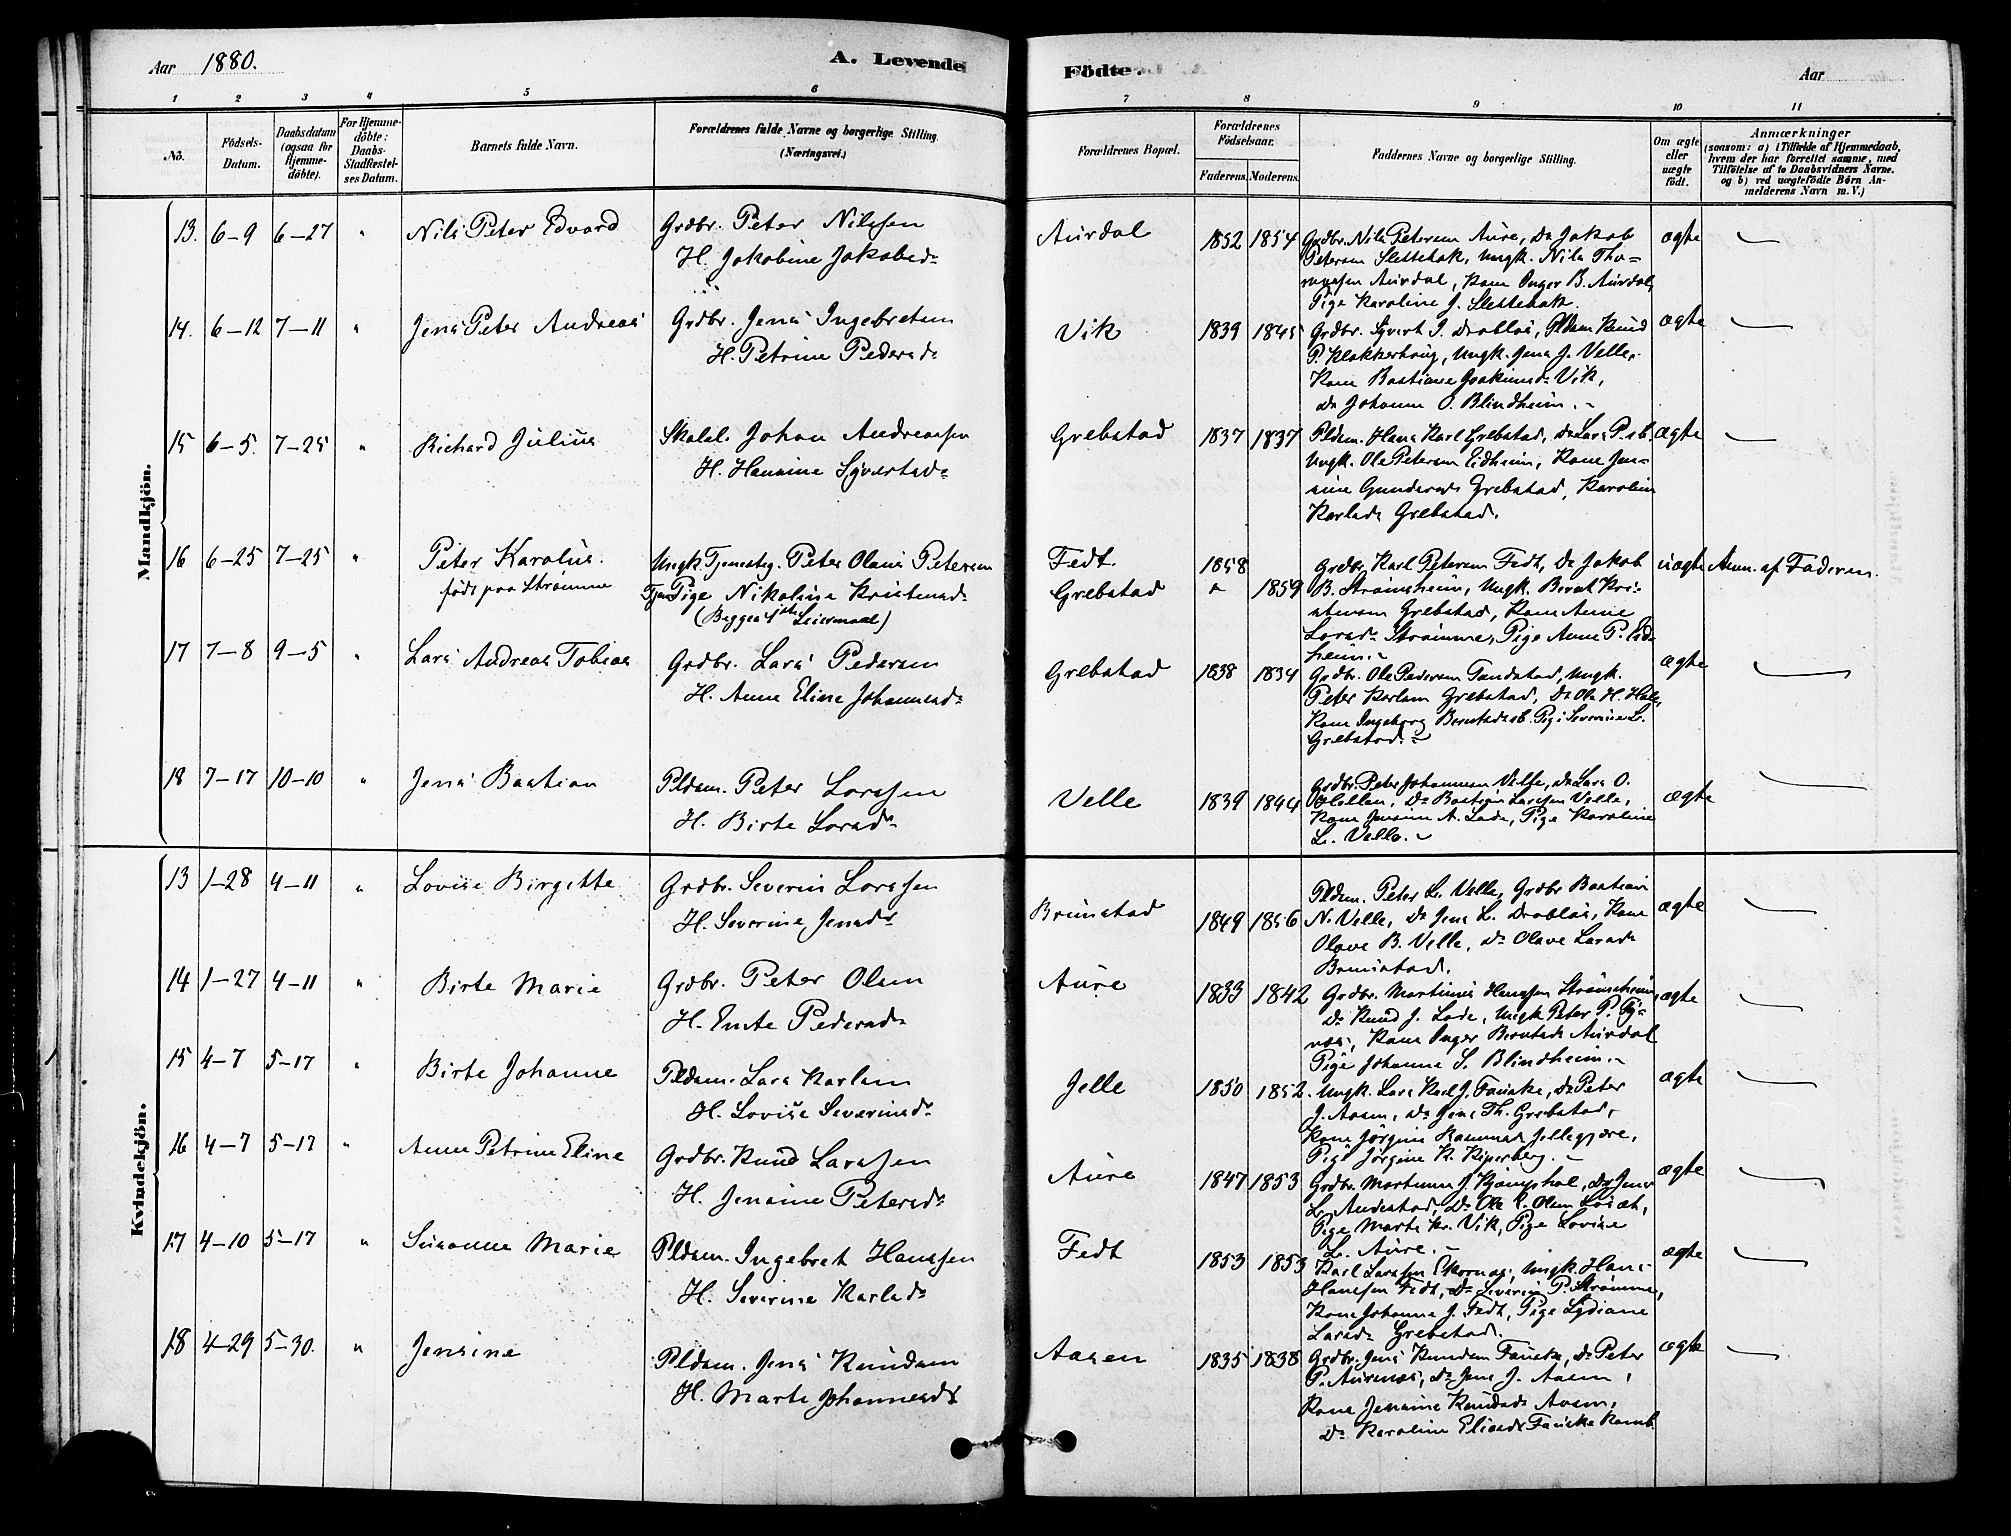 Aar 1880.
A. Levende
Födte.
Aar
1 2 3 4 5 6 7 8 9 10 11
No.
Födsels-Datum.
Daabsdatum (ogsaa for Hjemmedöbte).
For Hjemmedöbte: Daabs-Stadfæstelses Datum.
Barnets fulde Navn.
Forældrenes fulde Navne og borgerlige Stilling.
(Næringsvei.)
Forældrenes Bopæl.
Forældrenes Födselsaar.
Faderens. Moderens.
Faddernes Navne og borgerlige Stilling.
Om ægte eller uægte födt.
Anmærkninger
(saasom: a) i Tilfælde af Hjemmedaab,
hvem der har forrettet samme, med
Tilföielse af to Daabsvidners Navne.
og b) ved uægtefödte Börn Anmelderens Navn m. V.)
Mandkjön.
13. 6-9 6-27 " Nils Peter Edvard Grdbr. Peter Nilssen Aurdal 1852 1854 Grdbr. Nils Petersen Aure, Do Jakob ægte
H. Jakobine Jakobsdr Petersen Slettebak, Ungk. Nils Tho-
massen Aurdal, Kone Inger B. Aurdal,
Pige Karoline J. Slettebak.
14. 6-12 7-11 " Jens Peter Andreas Grdbr. Jens Ingebretsen Vik 1839 1845 Grdbr. Syvert I. Drabløs, Pldsm Knud ægte
H. Petrine Pedersdr P. Klokkerhaug, Ungk. Jens J. Velle,
Kone Bastiane Joakimsdr Vik,
Do Johanne O. Blindheim.
15 6-5. 7-25 " Richard Julius Skolel. Johan Andreassen Grebstad 1837 1837 Pldsm. Hans Karl Grebstad, Do Lars P. sb. ægte
H. Hansine Syverstadr Ungk. Ole Petersen Eidheim, Kone Jen-
sine Gundersdr Grebstad, Karolin
Karlsdr Grebstad.
16 6-25 7-25 " Peter Karolus. Ungk. Tjenestg. Peter Olaus Petersen Fedt. 1858 Grdbr. Karl Petersen Fedt, Do Jakob uægte Anm. af Faderen.
født paa Strømme Tjen Pige Nikoline Kristensdr Grebstad " 1859 B. Strømsheim, Ungk. Bernt Kri-
(Begges 1ste Leiermaal) stensen Grebstad, Kone Anne
Larsdr Strømme, Pige Anne P. Eid-
heim.
17 7-8 9-5 " Lars Andreas Tobias Grdbr. Lars Pedersen Grebstad 1838 1834 Grdbr. Ole Pedersen Tandstad, Ungk. ægte
H. Anne Eline Johannesdr Peter Karlsen Grebstad, Do Ole H. Hole,
Kone Ingeborg Berntsdr sb. Pige Severine L.
Grebstad.
18 7-17 10-10 " Jens Bastian Pldsm. Peter Larssen Velle 1839 1844 Grdbr. Peter Johannessen Velle, Do Lars O. ægte
H. Birte Larsdr Do Bastian Larssen Velle,
Kone Jensine A. Lade, Pige Karoline
L. Velle.
Kvindekjön.
13 1-28 4-11 " Lovise Birgitte Grdbr. Severin Larssen Brunstad 1849 1856 Pldsm. Peter L. Velle, Grdbr Bastian ægte
H. Severine Jensdr N. Velle, Do Jens L. Drabløs, Kone
Olave B. Velle, Do Olave Larsdr
Brunstad.
14 1-27 4-11 " Birte Marie Grdbr. Peter Olsen Aure 1833 1842 Grdbr. Martinus Hanssen Strømsheim, ægte
H. Emte Pedersdr Do Knud J. Lade, Ungk Peter P. Ty-
nes, Kone Inger Berntsdr Aurdal
Pige Johanne S. Blindheim.
15 4-7 5-17 " Birte Johanne Pldsm. Lars Karlsen Jelle 1850 1852. Ungk. Lars Karl J. Fauske, Do Peter ægte
H. Lovise Severinsdr J. Aasen, Do Jens Th. Grebstad,
Kone Jørgine Rasmusdr Jellegjære,
Pige Jørgine K. Kiperberg.
16 4-7 5-17 " Anne Petrine Eline Grdbr. Knud Larssen Aure 1847 1853 Grdbr. Martinus J. Kjemphol, Do Jens ægte
H. Jensine Petersdr L. Andestad, Do Ole E. Olsen Løset,
Pige Marte Kr. Vik, Pige Lovise
L. Aure.
17 4-10 5-17 " Susanne Marie Pldsm. Ingebret Hanssen Fedt 1853 1853 Karl Larssen Ekornes, Ungk. Hans ægte
H. Severine Karlsdr Hanssen Fedt, Do Severin P. Strømme,
Kone Johanne J. Fedt, Pige Lydiane
Larsdr Grebstad.
18 4-29 5-30. " Jensine Pldsm. Jens Knudsen Aasen 1835 1838 Grdbr. Jens Knudsen Fauske, Do Peter ægte
H. Marte Johannesdr P. Aurenes, Do Jens J. Aasen,
Kone Jensine Knudsdr Aasen,
Do Karoline Eliasdr Fauske